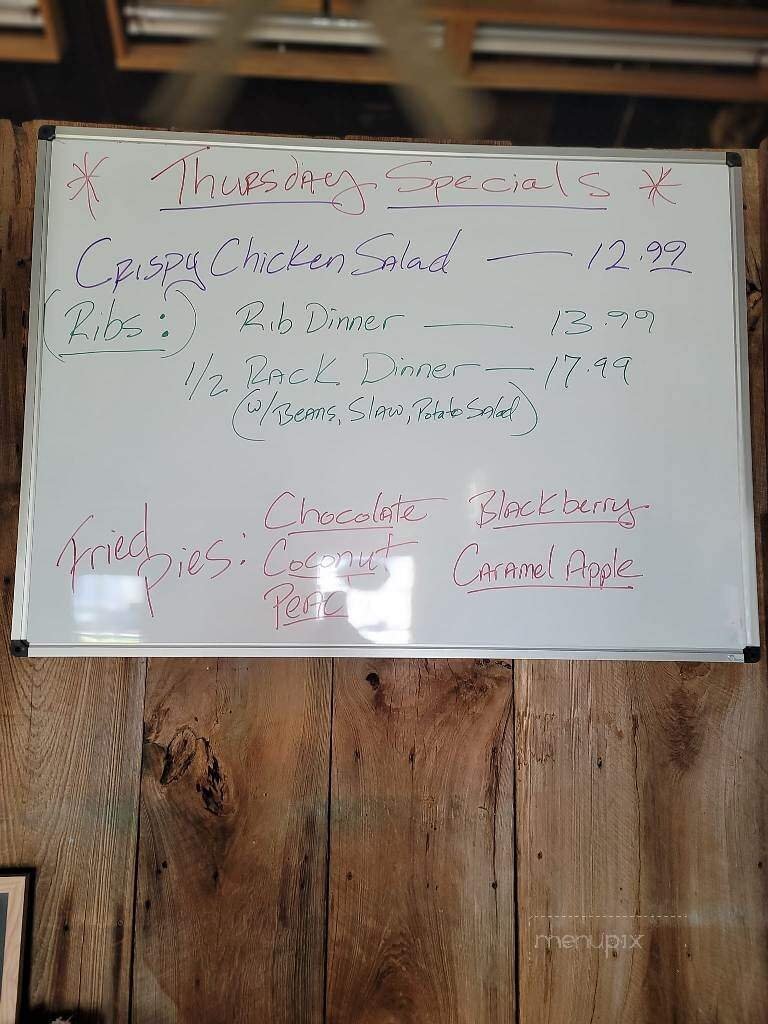 * Thursday Specials *
Crispy Chicken Salad — 12.99
(Ribs:) Rib Dinner — 13.99
1/2 Rack Dinner — 17.99
(w/ Beans, Slaw, Potato Salad)
Fried Pies: Chocolate Blackberry
Coconut Caramel Apple
menupix